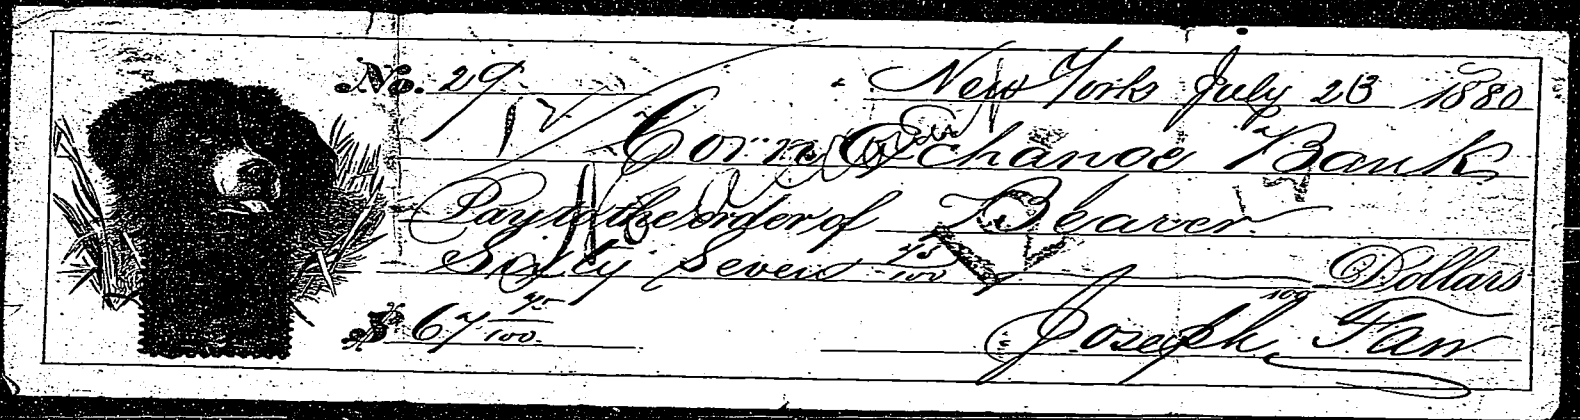 No. 29
New York July 23 1880
Corn Exchange Bank
Pay to the order of Bearer
Sixty Seven 45/100 Dollars
$ 67 45/100
Joseph Fan